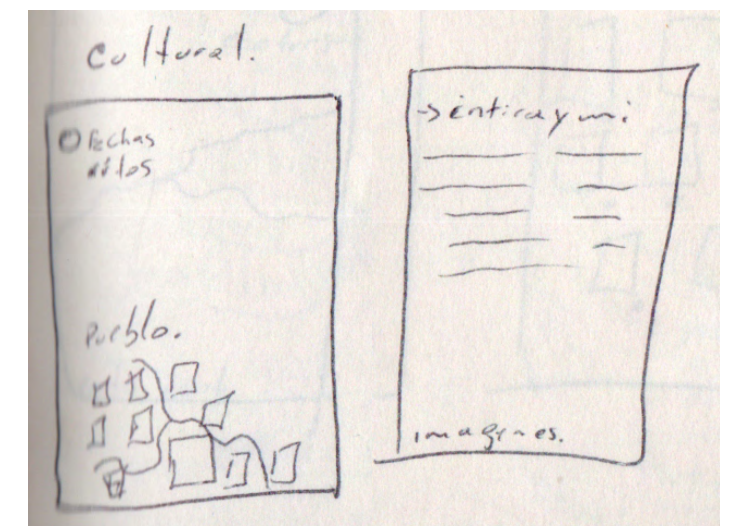 Cultural.
Fechas
ritos
Pueblo.
→ intiraymi
imagenes.